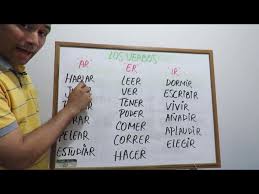 LOS VERBOS
"AR"
HABLAR
PELEAR
ESTUDIAR
"ER"
LEER
VER
TENER
PODER
COMER
CORRER
HACER
"IR"
DORMIR
ESCRIBIR
VIVIR
AÑADIR
APLAUDIR
ELEGIR